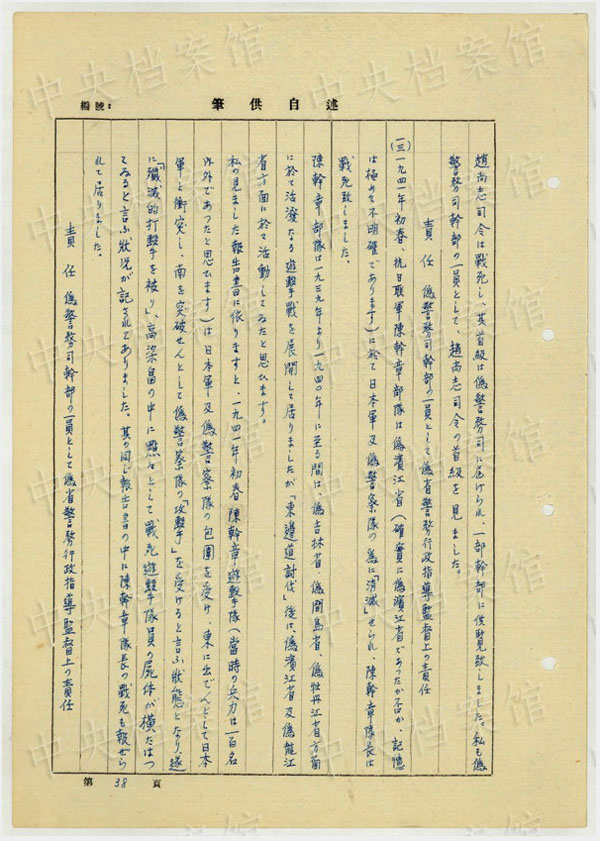 編號:
筆供自述
趙尚志司令は戰死し、其首級は偽警務司に届けられ、一部幹部に供覧致しました。私も偽
警務司幹部の一員として、趙尚志司令の首級を見ました。
責任 偽警務司幹部の一員として偽省警務行政指導監督上の責任
(三)一九四一年初春、抗日联軍陳幹章部隊は偽濱江省(確實に偽濱江省であつたか否か、記憶
は極めて不明確であります)に於て日本軍及偽警察隊の為に「消滅」せられ、陳幹章隊長は
戰死致しました。
陳幹章部隊は一九三九年より一九四〇年に至る間は、偽吉林省、偽間島省、偽牡丹江省方面
に於て活發なる遊擊戰を展開して居りましたが「東邊道討伐」後は偽濱江省及偽龍江
省方面に於て活動してゐたと思ひます。
私の見ました報告書に依りますと、一九四一年初春陳幹章遊擊隊(當時の兵力は一百名
内外であつたと思ひます)は日本軍及偽警察隊の包圍を受け、東に出でんとして日本
軍と衝突し、南を突破せんとして偽警察隊の「攻擊」を受けると言ふ狀態となり、遂
に「殲滅的打擊を被り」、高粱畠の中に點々として戰死遊擊隊員の屍体が横たはつ
てゐると言ふ狀況が記されてありました。其の同じ報告書の中に陳幹章隊長の戰死も報ぜら
れて居りました。
責任 偽警務司幹部の一員として偽省警務行政指導監督上の責任
第38頁
中央档案馆